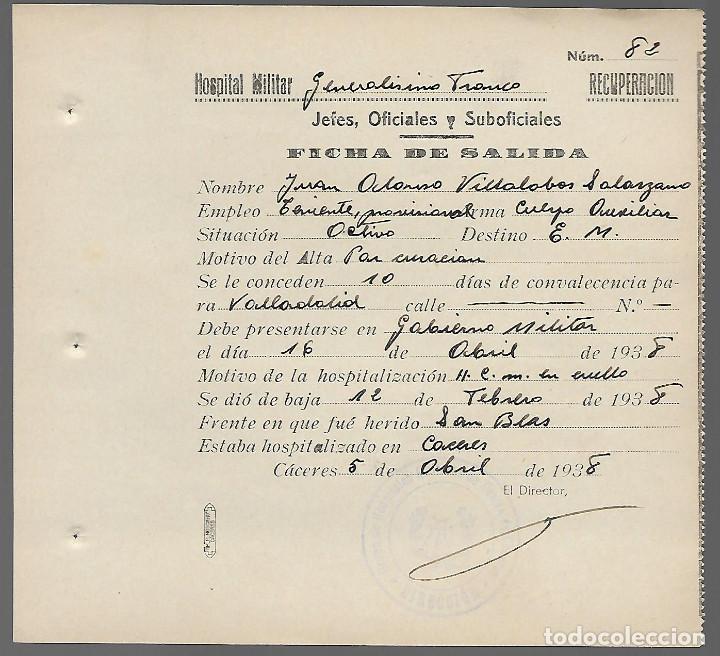 Núm. 82
Hospital Militar Generalisimo Franco RECUPERACION
Jefes, Oficiales y Suboficiales
FICHA DE SALIDA
Nombre Juan Alonso Villalobos Solorzano
Empleo Teniente, provisional Arma Cuerpo Auxiliar
Situación Activo Destino E. M.
Motivo del Alta Por curacion
Se le conceden 10 días de convalecencia pa-
ra Valladolid calle — N.º —
Debe presentarse en Gobierno Militar
el día 16 de Abril de 1938
Motivo de la hospitalización H. C. m. en cuello
Se dió de baja 12 de Febrero de 1938
Frente en que fué herido San Blas
Estaba hospitalizado en Caceres
Cáceres 5 de Abril de 1938
El Director,
DIRECCION
todocoleccion